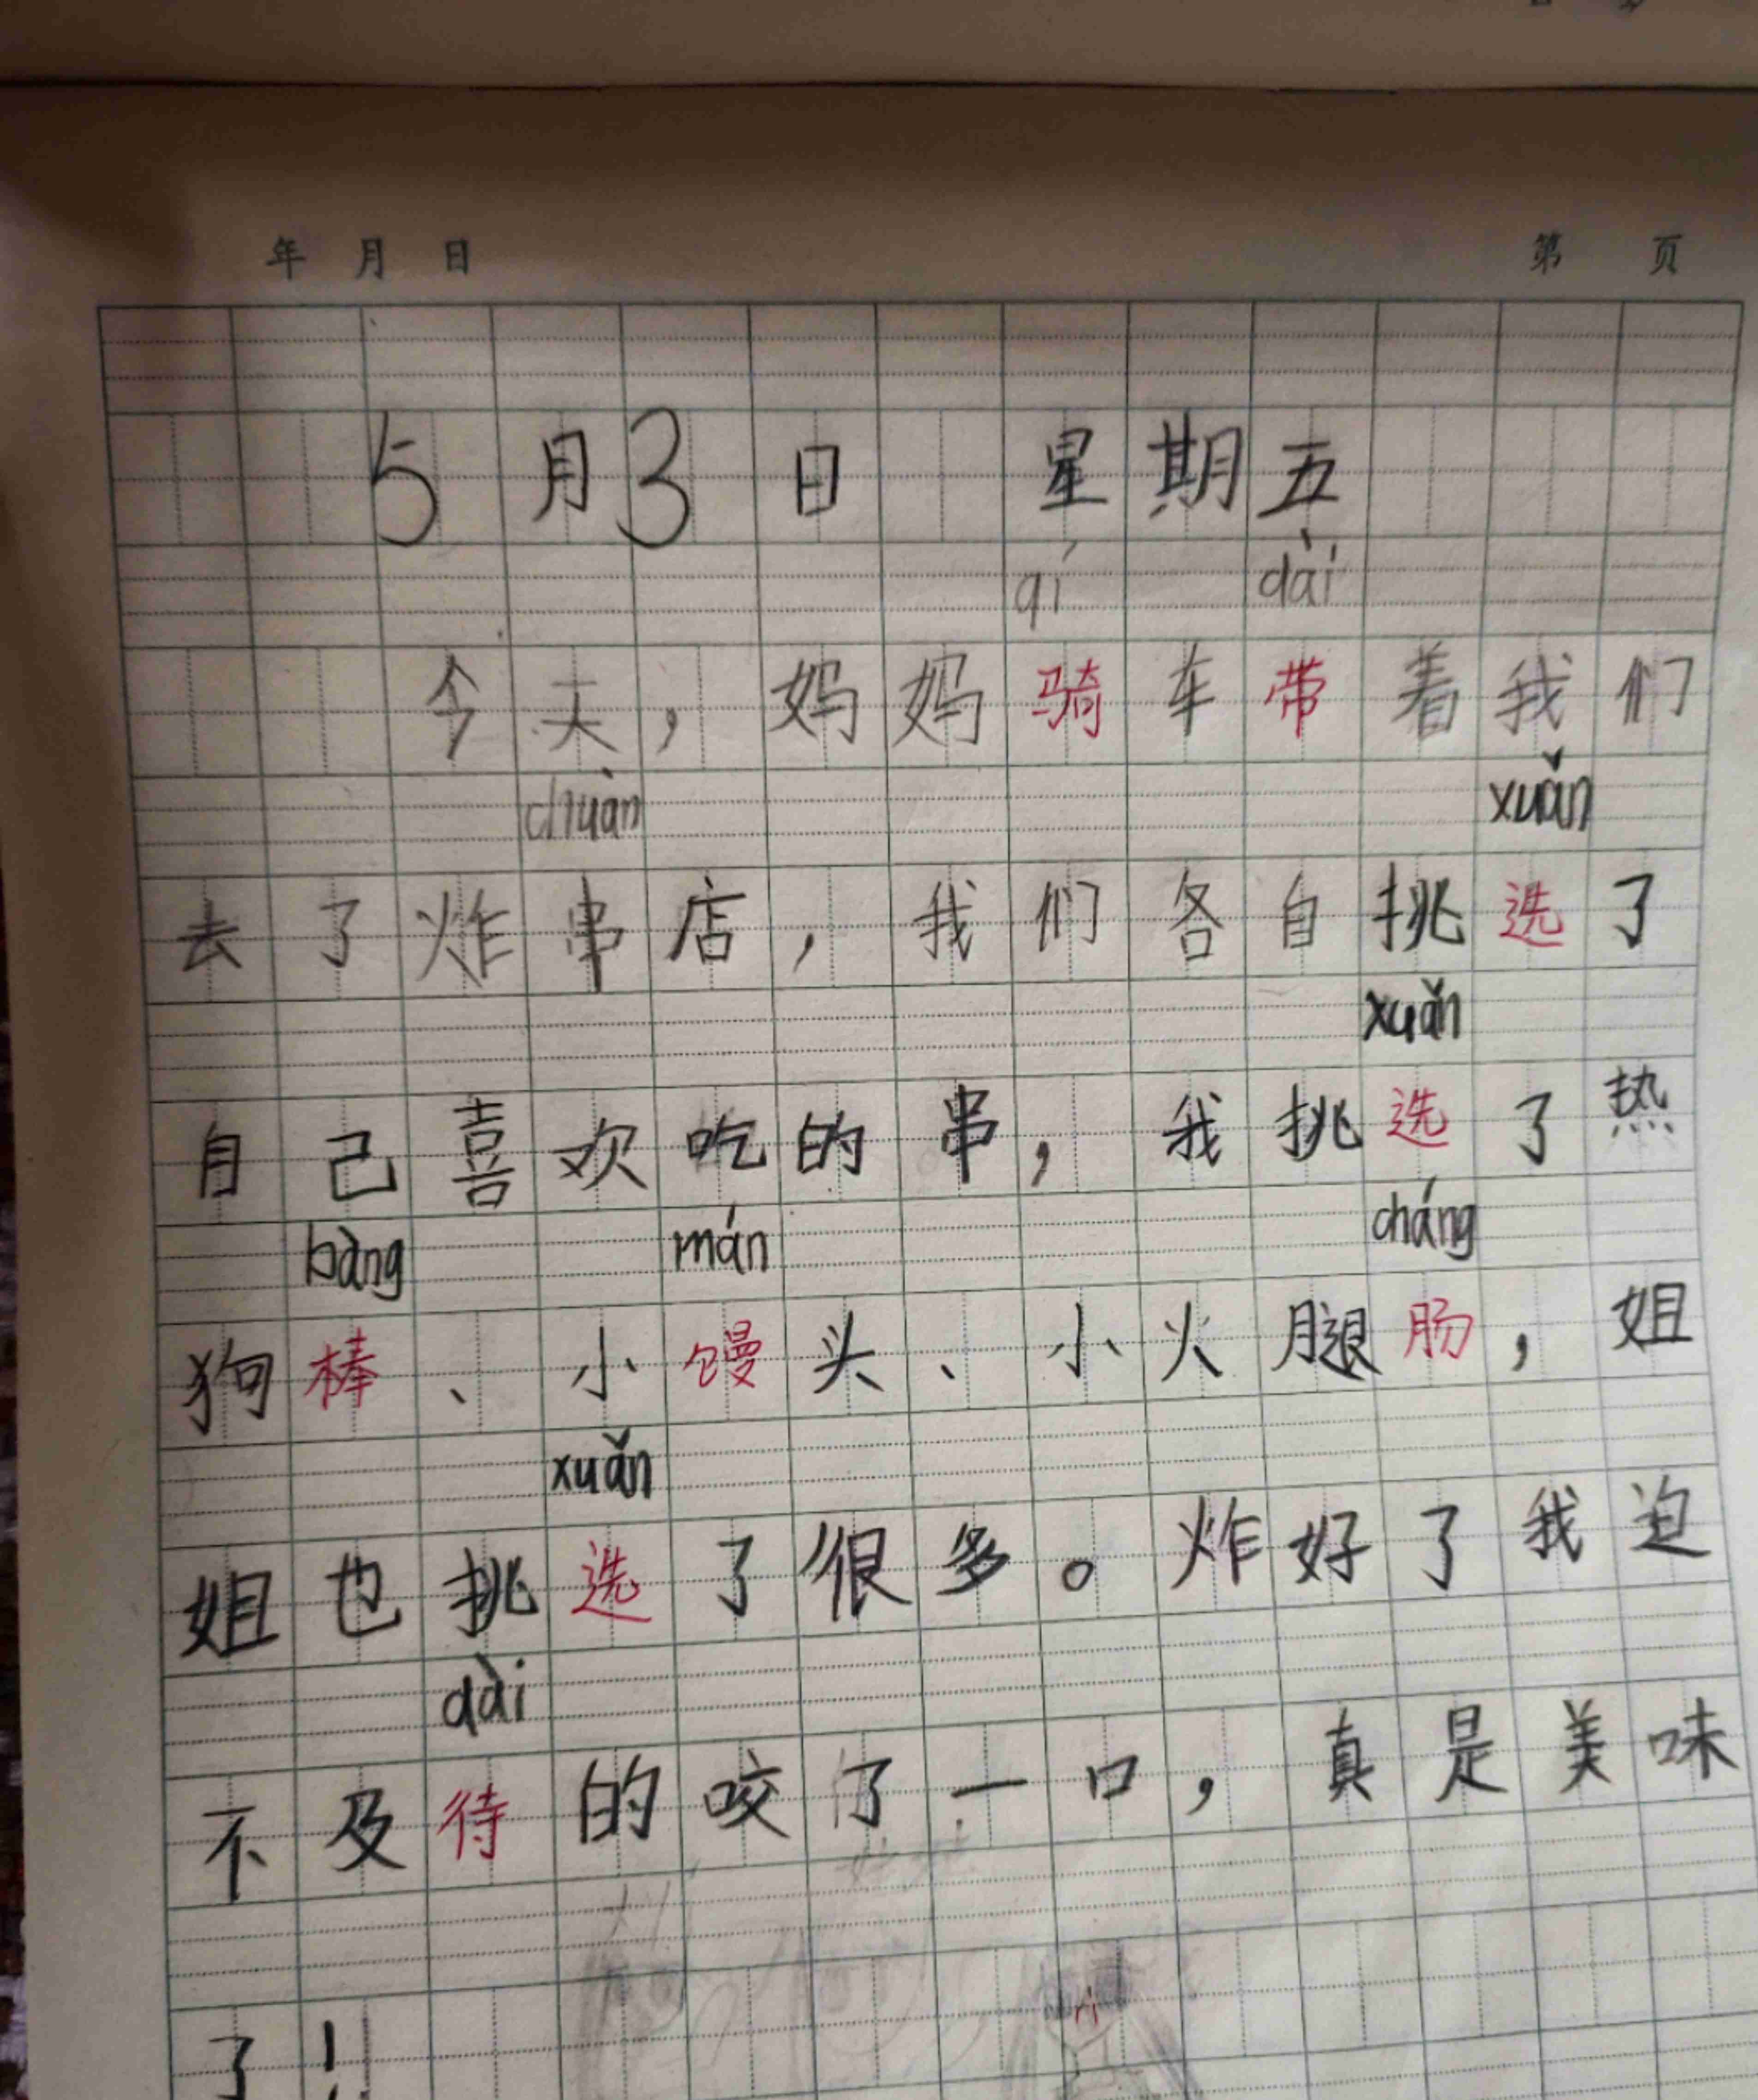 年 月 日 第 页
5月3日 星期五
qí dài
今天，妈妈骑车带着我们
chuàn xuǎn
去了炸串店，我们各自挑选了
xuǎn
自己喜欢吃的串，我挑选了热
bàng mán cháng
狗棒、小馒头、小火腿肠，姐
xuǎn
姐也挑选了很多。炸好了我迫
dài
不及待的咬了一口，真是美味
了！